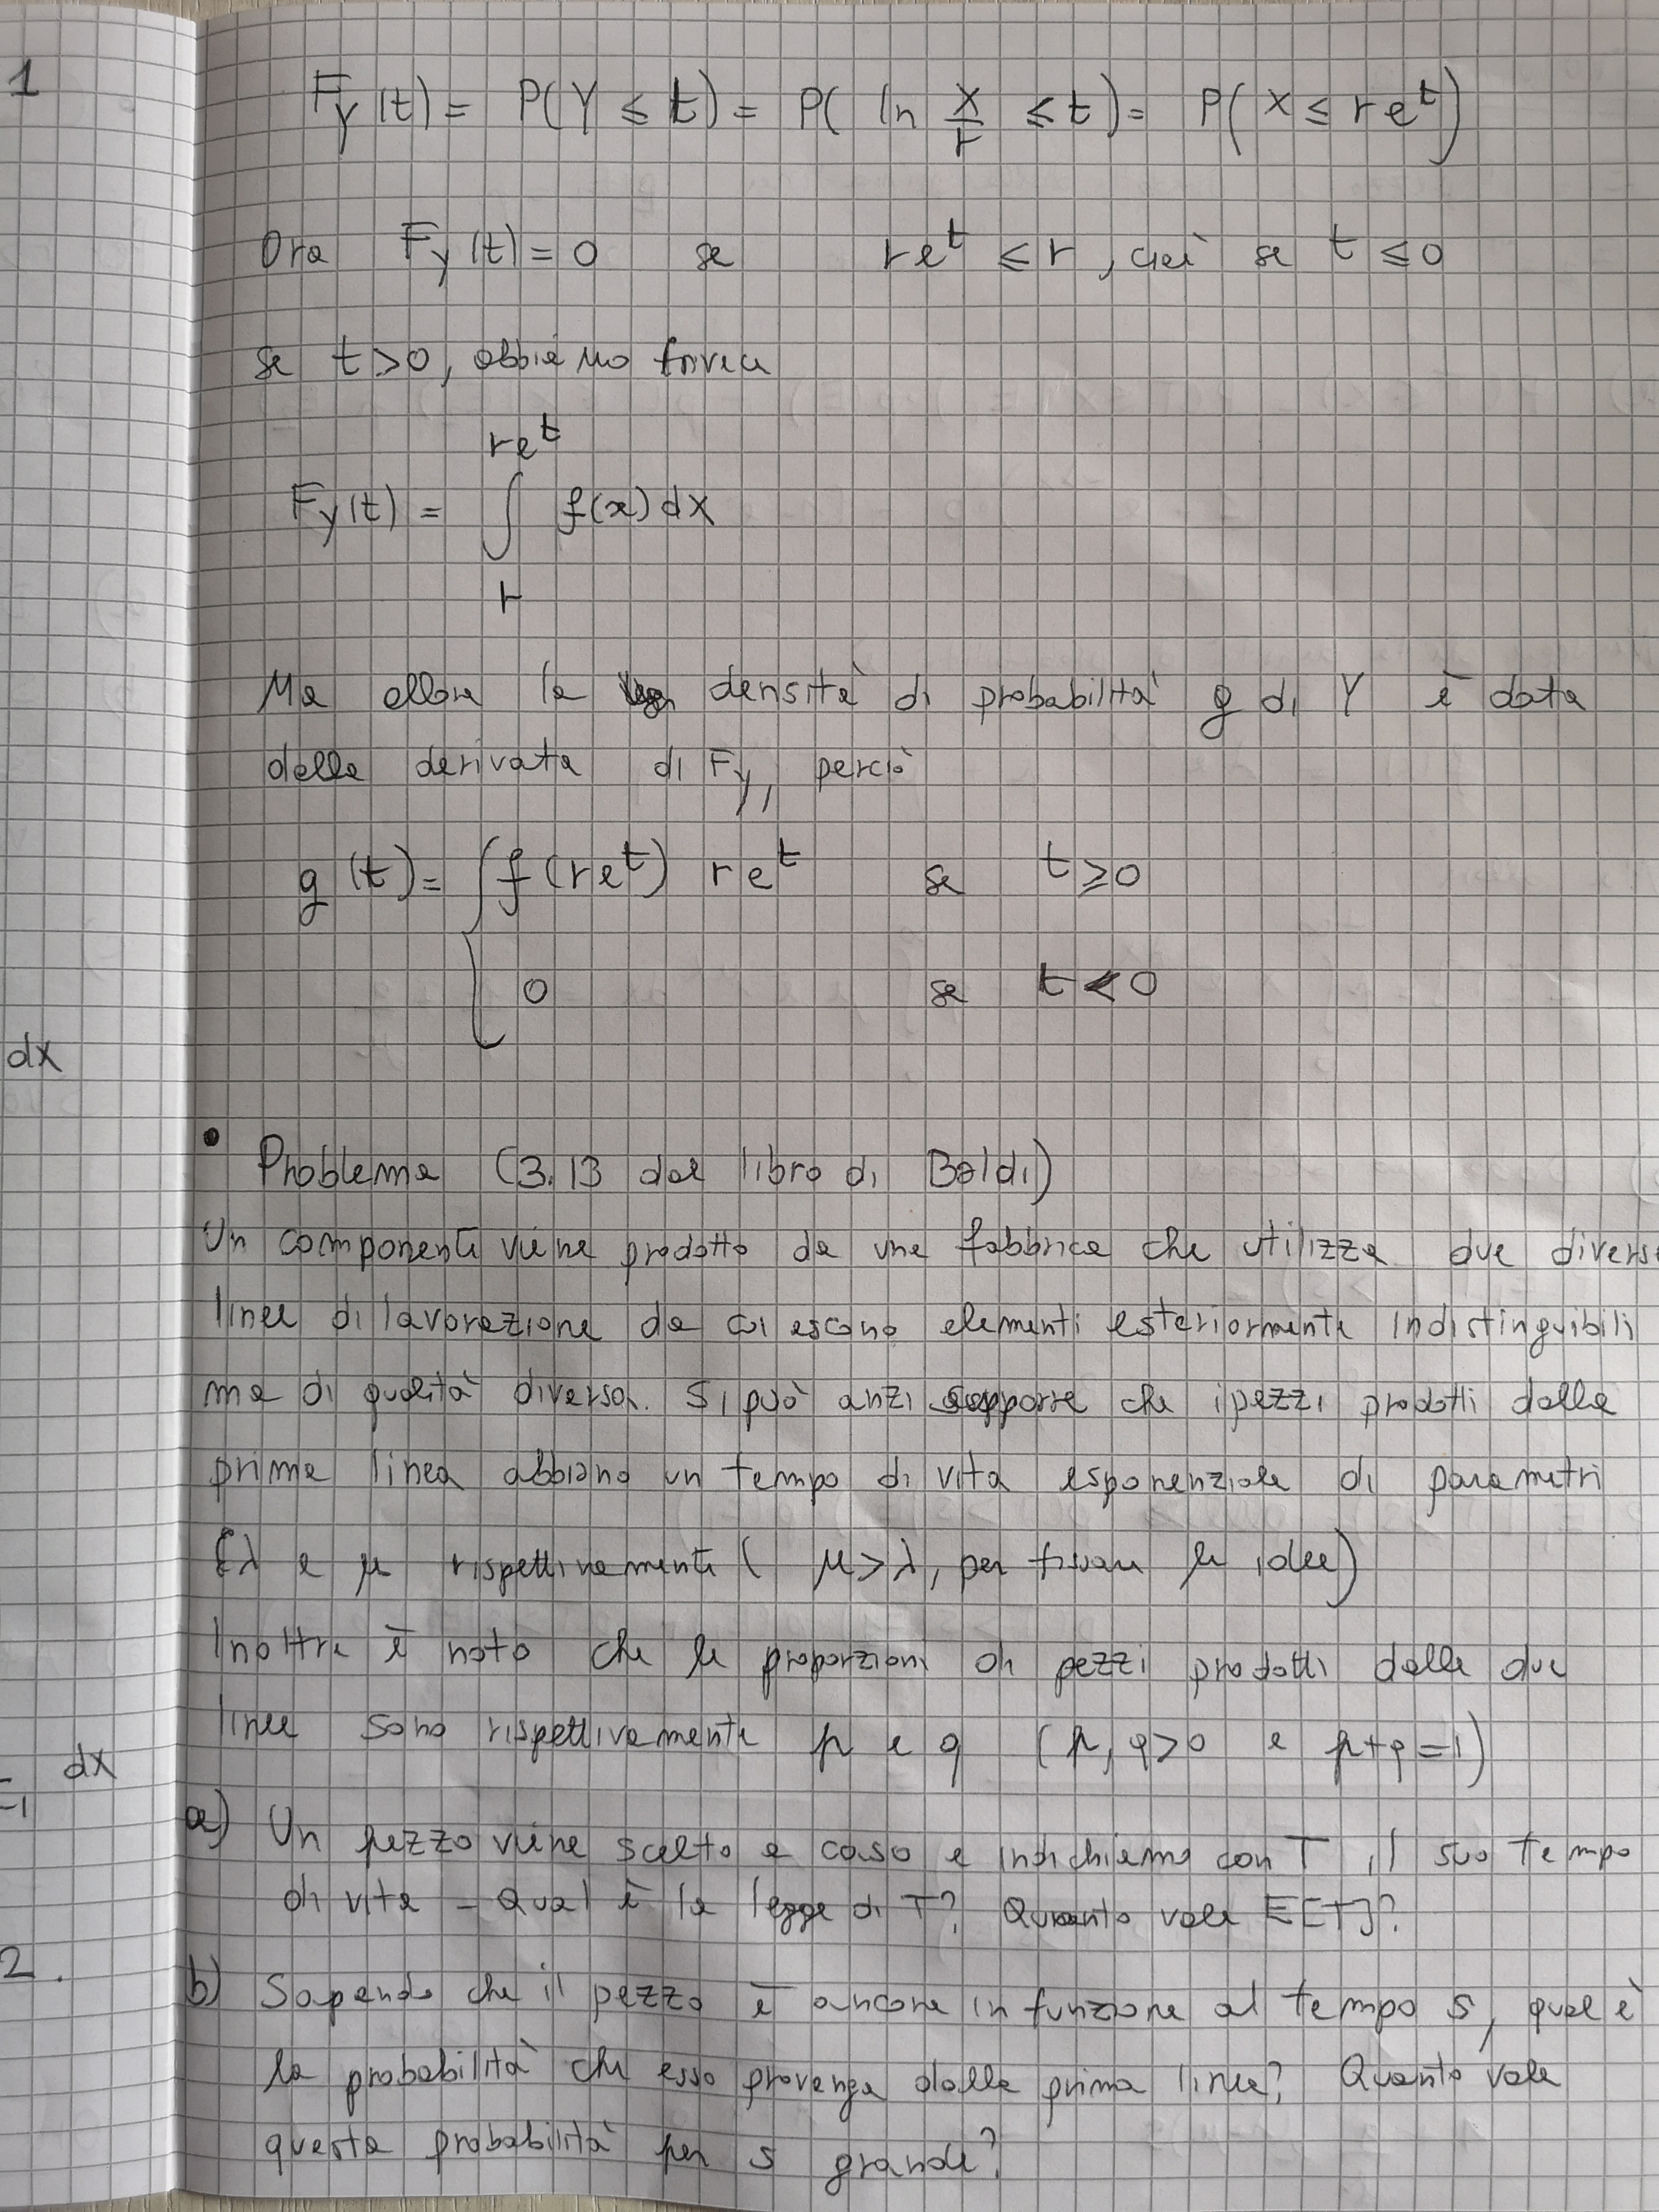 1
F_Y(t) = P(Y ≤ t) = P( ln X/r ≤ t) = P( X ≤ re^t)
Ora F_Y(t) = 0 se re^t ≤ r, cioè se t ≤ 0
se t > 0, abbiamo invece
F_Y(t) = ∫_r^{re^t} f(x) dx
Ma allora la densità di probabilità g di Y è data
dalla derivata di F_Y, perciò
g(t) = { f(re^t) re^t se t ≥ 0
0 se t < 0
dx
• Problema (3.13 dal libro di Baldi)
Un componente viene prodotto da una fabbrica che utilizza due diverse
linee di lavorazione da cui escono elementi esteriormente indistinguibili
ma di qualità diversa. Si può anzi supporre che i pezzi prodotti dalla
prima linea abbiano un tempo di vita esponenziale di parametri
λ e μ rispettivamente ( μ > λ, per fissare le idee)
Inoltre è noto che le proporzioni di pezzi prodotti dalle due
linee sono rispettivamente p e q (p, q > 0 e p + q = 1)
dx
-1
a) Un pezzo viene scelto a caso e indichiamo con T il suo tempo
di vita - Qual è la legge di T? Quanto vale E[T]?
2.
b) Sapendo che il pezzo è ancora in funzione al tempo s, qual è
la probabilità che esso provenga dalla prima linea? Quanto vale
questa probabilità per s grande?